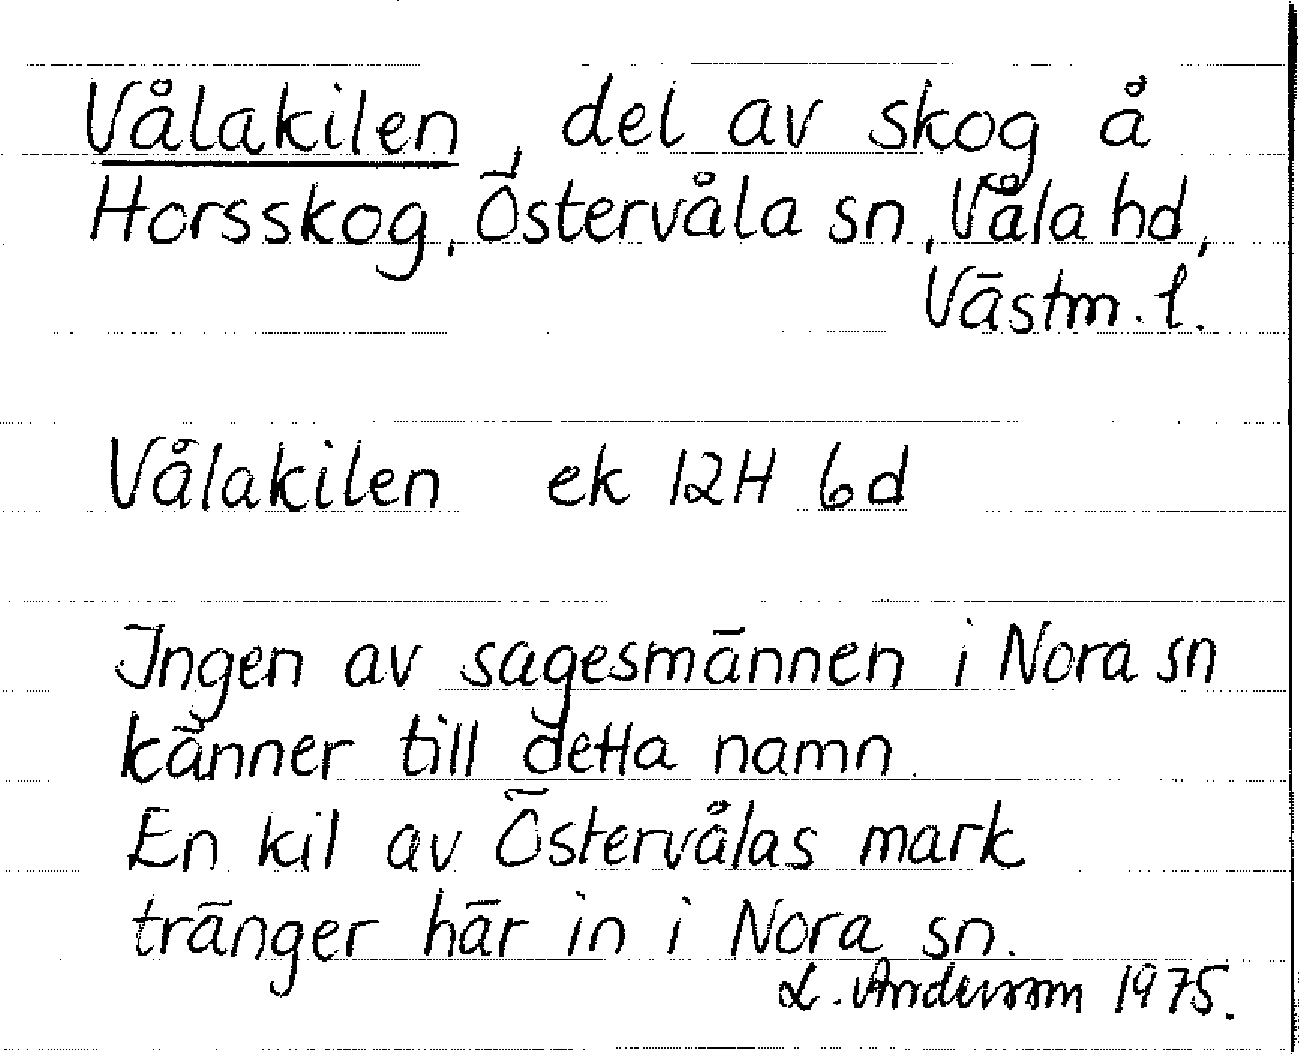 Vålakilen, del av skog å
Horsskog, Östervåla sn, Våla hd,
Västm. l.
Vålakilen ek 12H 6d
Ingen av sagesmännen i Nora sn
känner till detta namn.
En kil av Östervålas mark
tränger här in i Nora sn.
L. Andersson 1975.